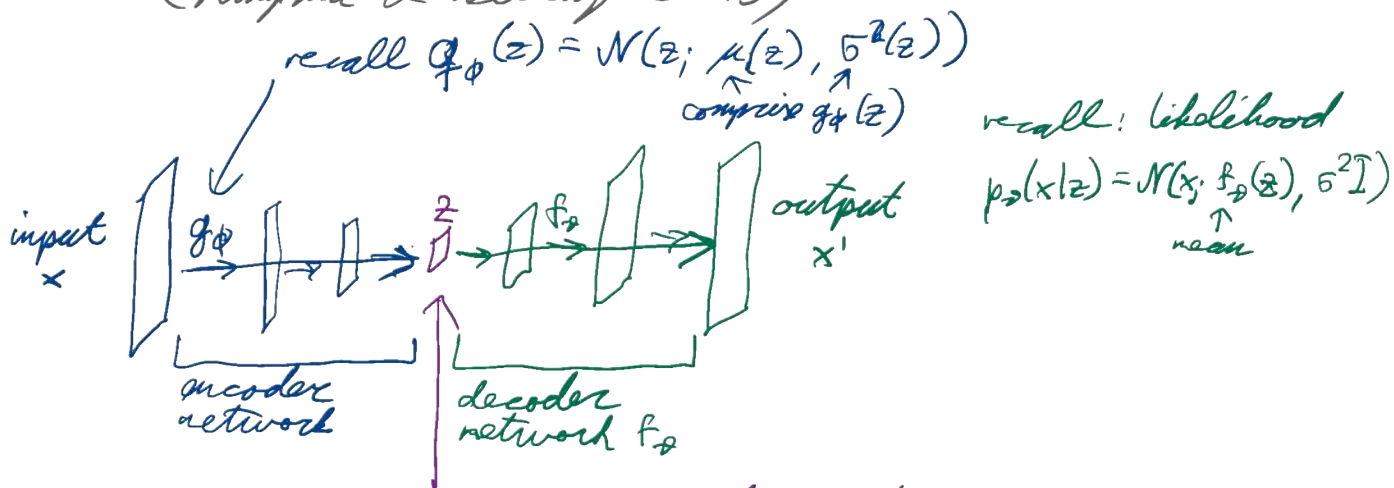 recall q_ϕ(z) = N(z; μ(z), σ²(z))
comprise g_ϕ(z)
recall: likelihood
p_θ(x|z) = N(x; f_θ(z), σ²I)
mean
input
x
g_ϕ
z
f_θ
output
x'
encoder
network
decoder
network f_θ